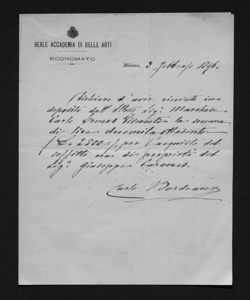 REALE ACCADEMIA DI BELLE ARTI
ECONOMATO
Milano, 3 Febbrajo 1896.
Dichiaro d'aver ricevuto in
deposito dall' Sig. Marchese
Carlo Ermes Visconti la somma
di lire duemila
(L. 2500) per l'acquisto del
soffitto di proprietà del
Sig. Giuseppe
Carlo